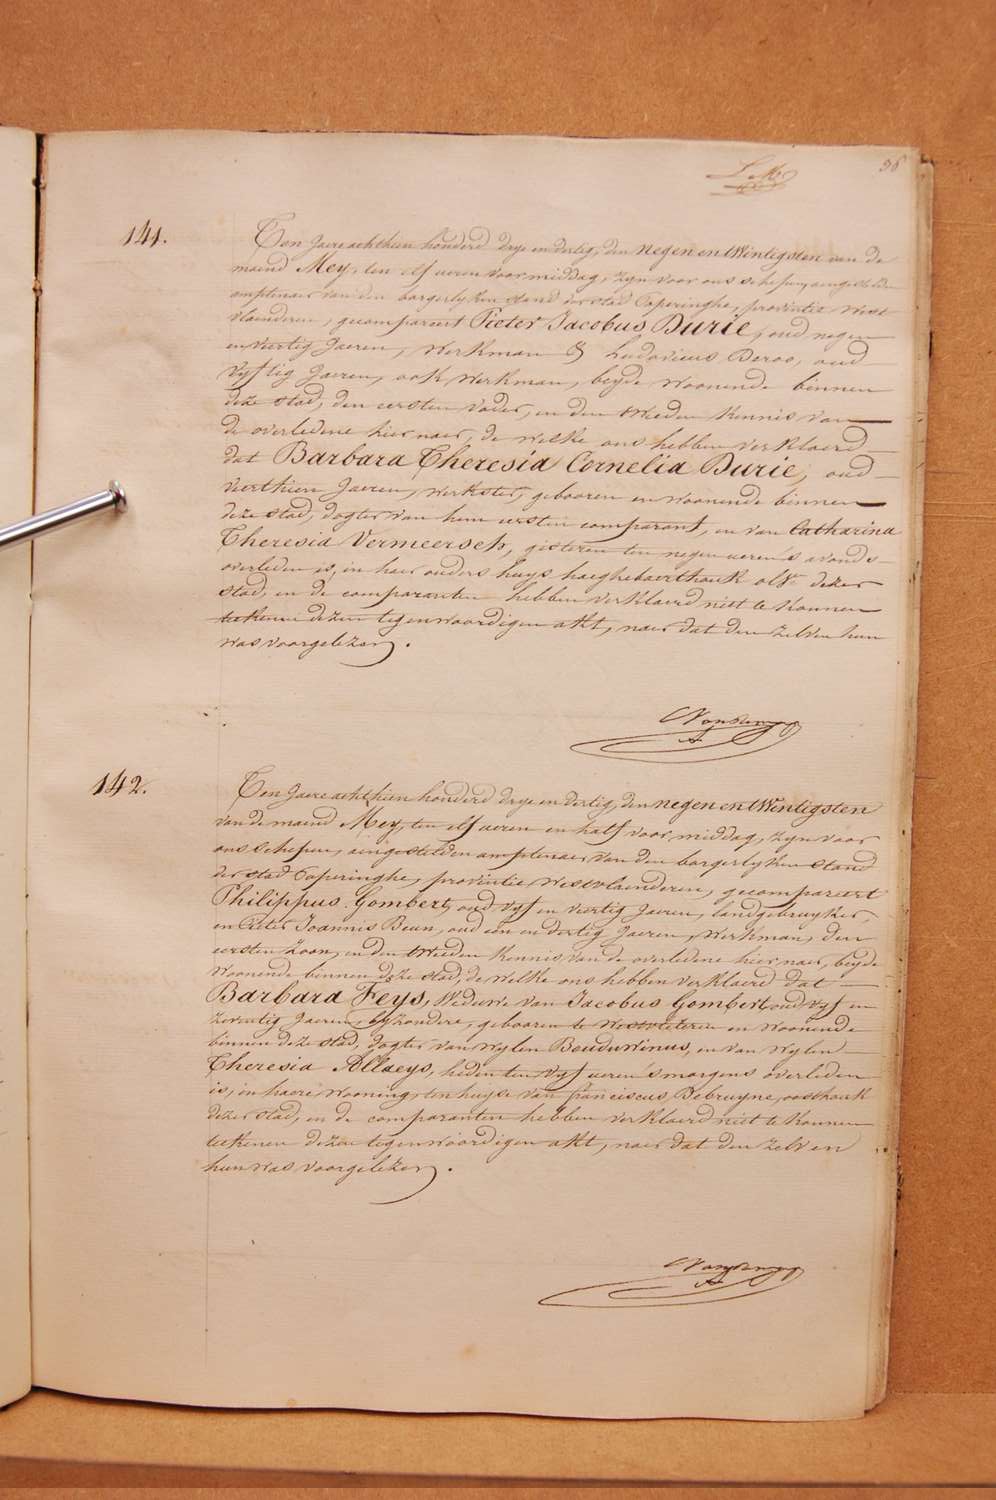 36
141.
Ten Jaere achthien honderd drye en dertig, den negen en twintigsten van de
maend Mey, ten elf ueren voor middag, zyn voor ons schepen, aengestelden
amptenaer van den borgerlyken stand der stad Poperinghe, provintie West
vlaenderen, gecompareert Pieter Jacobus Durie, oud negen
en viertig Jaeren, werkman & Ludovicus Deroo, oud
vyftig Jaeren, ook werkman, beyde woonende binnen
deze stad, den eersten vader, en den tweeden kennis van
de overledene hier naer, de welke ons hebben verklaerd
dat Barbara Theresia Cornelia Durie, oud
veerthien Jaeren, werkster, gebooren en woonende binnen
deze stad, dogter van hem eersten comparant, en van Catharina
Theresia Vermeersch, gisteren ten negen ueren 's avonds
overleden is, in haer ouders huys haeghebaerthouk dezer
stad, en de comparanten hebben verklaerd niet te konnen
teekenen dezen tegenwoordigen akt, naer dat den zelven hun
was voorgelezen.
142.
Ten Jaere achthien honderd drye en dertig, den negen en twintigsten
van de maend Mey, ten elf ueren en half voor middag, zyn voor
ons schepen, aengestelden amptenaer van den borgerlyken stand
der stad Poperinghe, provintie Westvlaenderen, gecompareert
Philippus Gombert, oud vyf en viertig Jaeren, landgebruyker,
en Pieter Joannis Beun, oud een en dertig Jaeren, werkman, den
eersten zoon, en den tweeden kennis van de overledene hier naer, beyde
woonende binnen deze stad, de welke ons hebben verklaerd dat
Barbara Feys, Weduwe van Jacobus Gombert, oud vyf en
zeventig Jaeren, byzondere, gebooren te Westvleteren en woonende
binnen deze stad, dogter van wylen Bouduwinus, en van wylen
Theresia Allaeys, heden ten vyf ueren 's morgens overleden
is, in haere wooning, ten huyse van franciscus Debruyne, oosthouk
dezer stad, en de comparanten hebben verklaerd niet te konnen
teekenen dezen tegenwoordigen akt, naer dat den zelven
hun was voorgelezen.